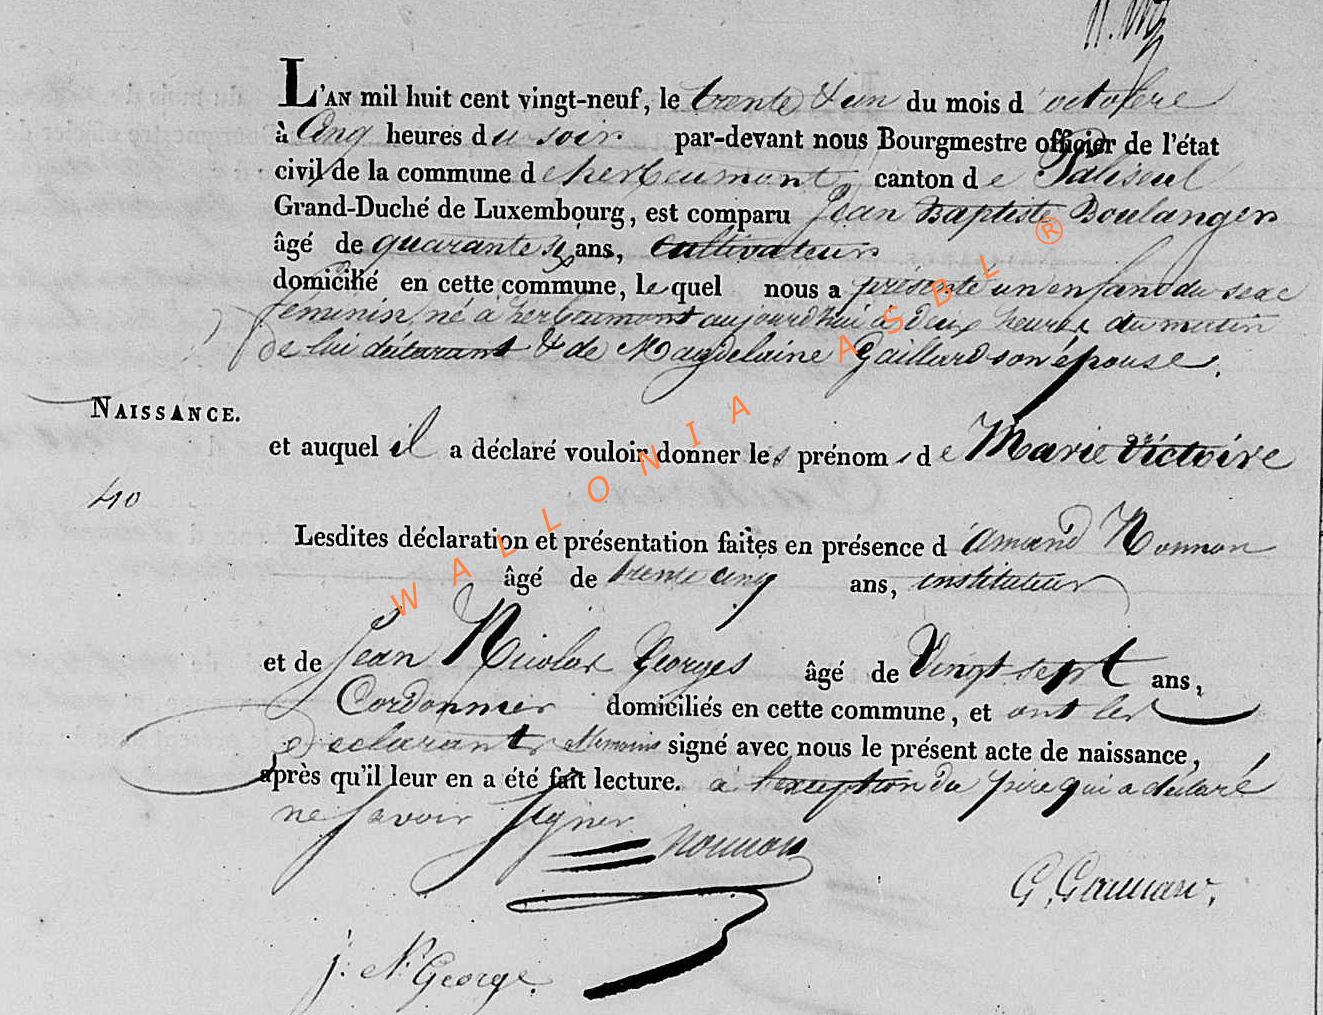 L'AN mil huit cent vingt-neuf, le trente & un du mois d'octobre
à Cinq heures du soir par-devant nous Bourgmestre officier de l'état
civil de la commune de herbeumont, canton de Paliseul
Grand-Duché de Luxembourg, est comparu Jean Baptiste Boulanger
âgé de quarante six ans, Cultivateur
domicilié en cette commune, lequel nous a présenté un enfant du sexe
féminin, né à herbeumont aujourd'hui à deux heures du matin
de lui déclarant & de Magdelaine Gaillard son épouse.
NAISSANCE.
et auquel il a déclaré vouloir donner les prénoms de Marie Victoire
40
Lesdites déclaration et présentation faites en présence d'amand Nonnon
âgé de trente cinq ans, instituteur
et de Jean Nicolas Georges âgé de Vingt sept ans,
Cordonnier domiciliés en cette commune, et ont les
déclarants & témoins signé avec nous le présent acte de naissance,
après qu'il leur en a été fait lecture. à l'exception du père qui a déclaré
ne savoir signer
Nonnon
J. N. George.
WALLONIA ASBL ®